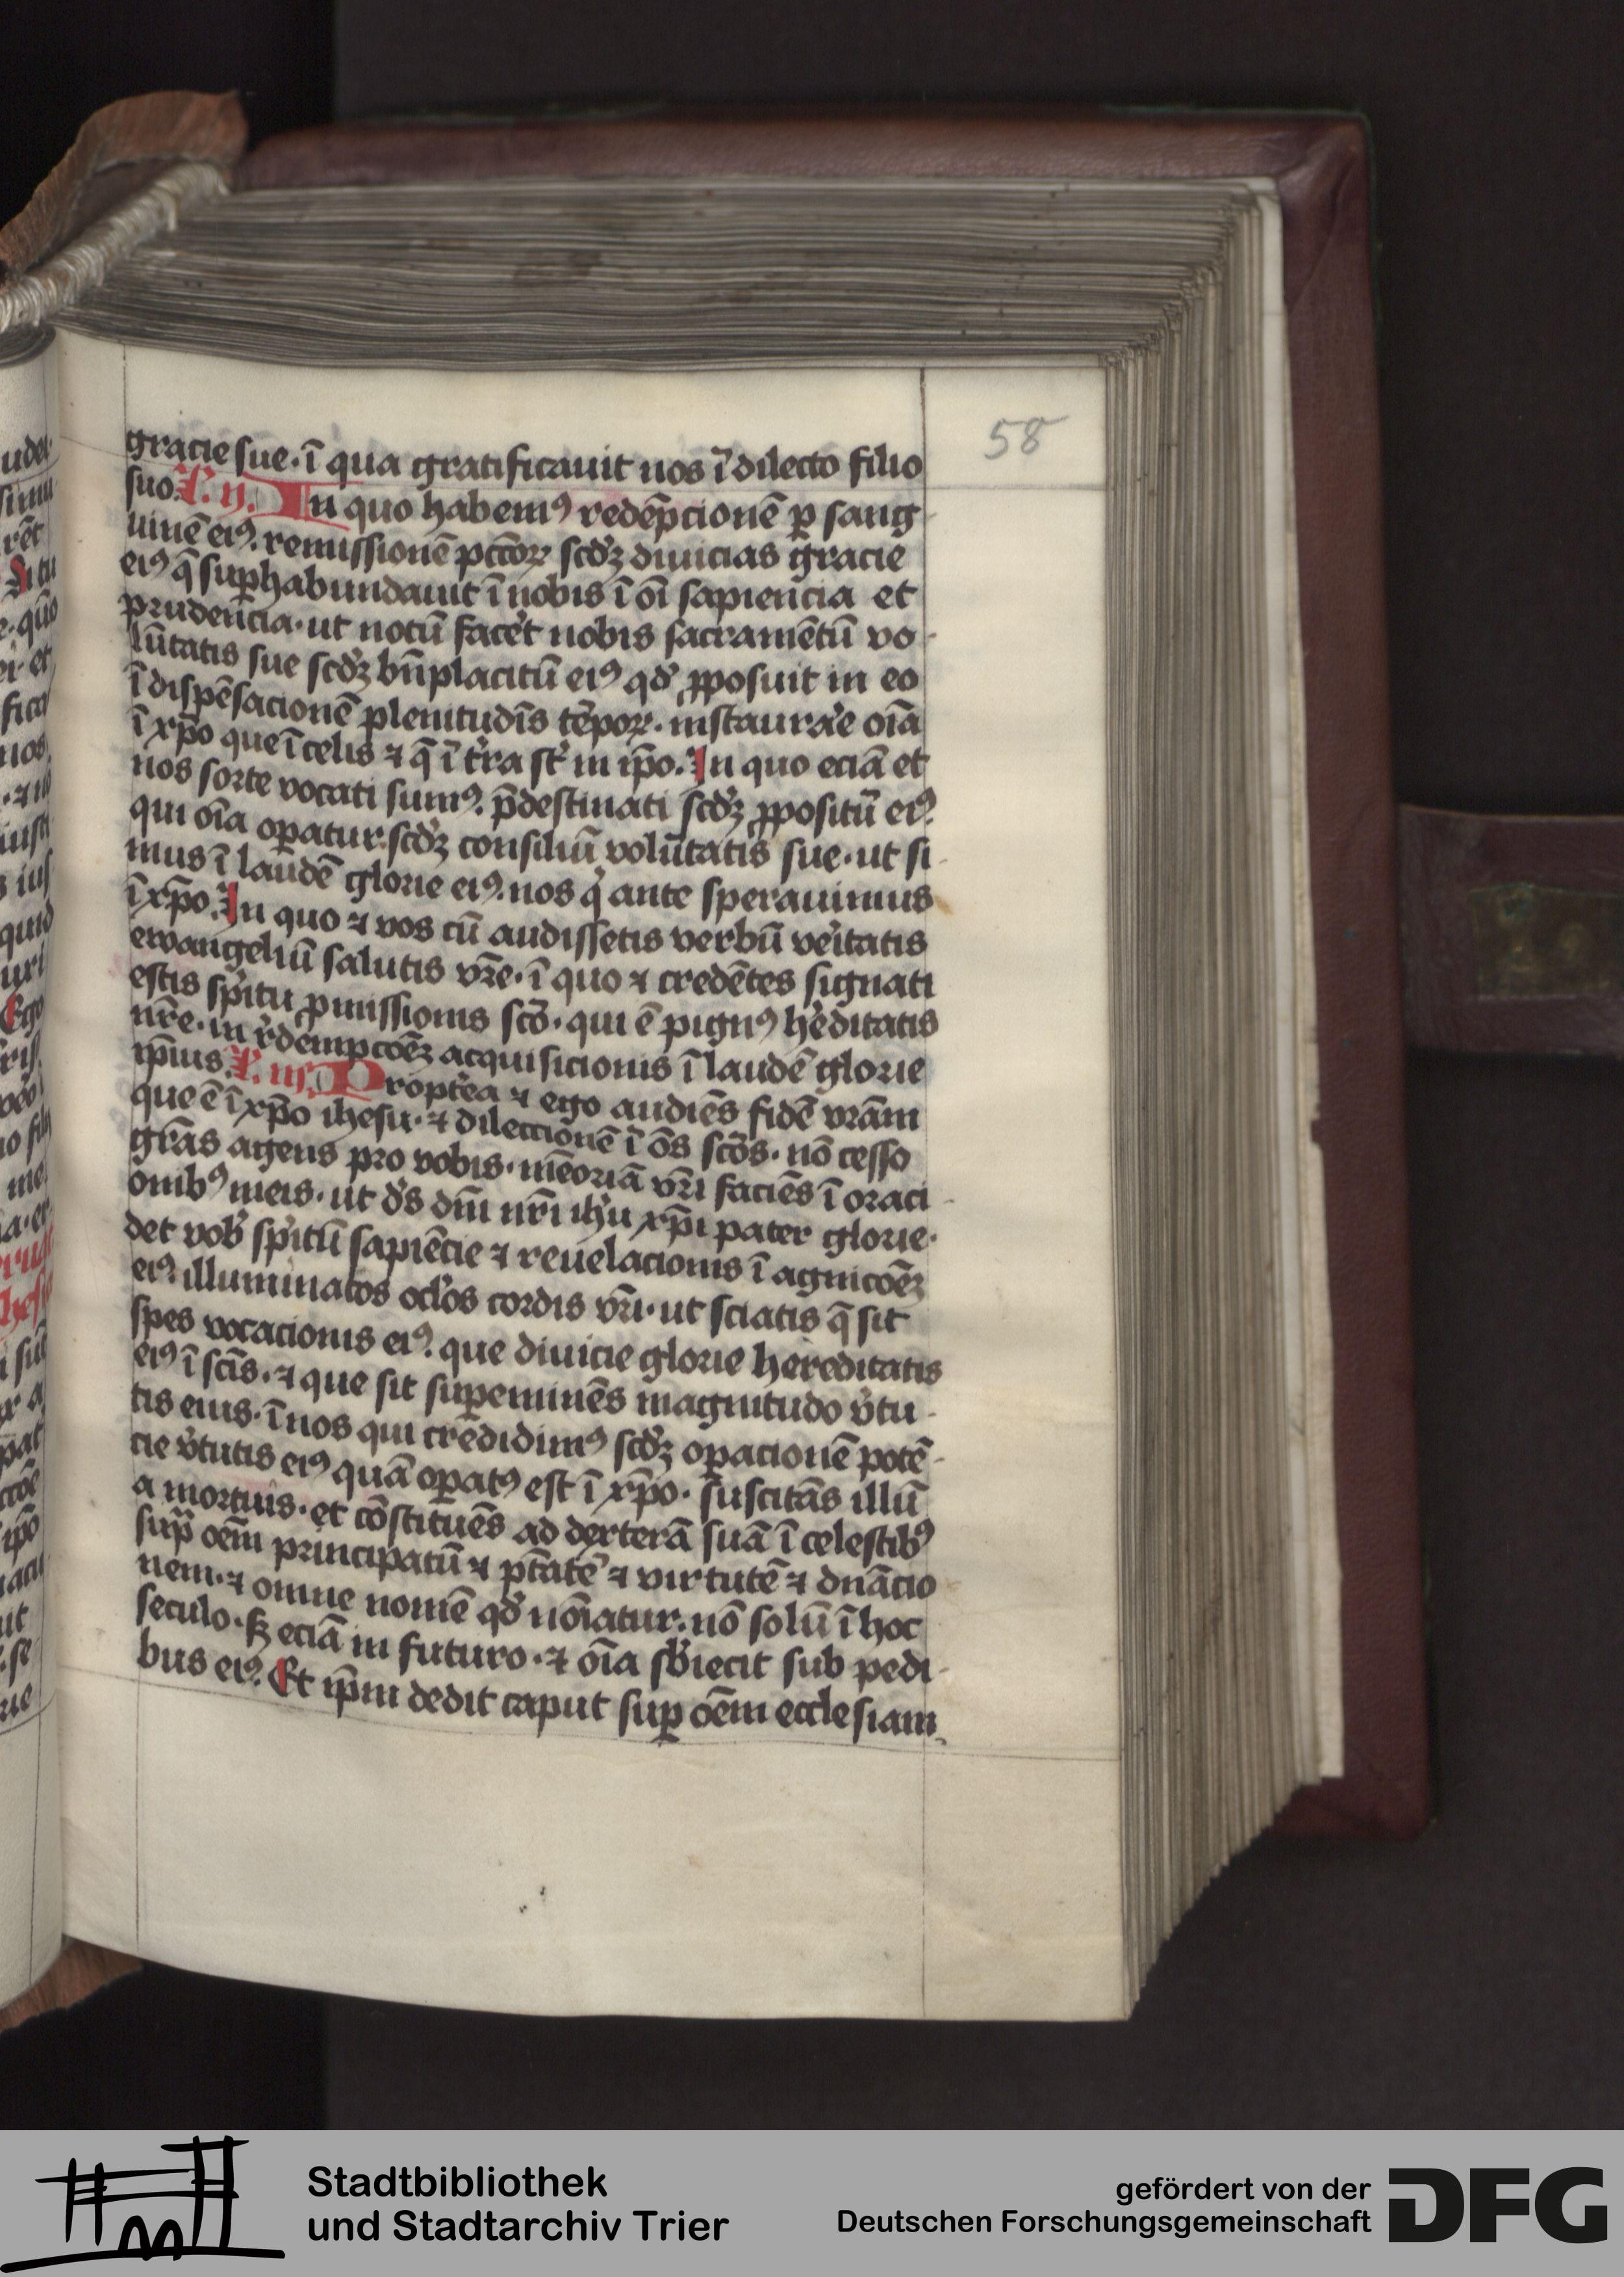 58
gracie sue· ī qua gratificauit nos ī dilecto filio
suo. L. ij. In quo habemꝰ redēpcionē ꝑ sang
uinē eiꝰ. remissionē pctōꝝ scdꝫ diuicias gracie
eiꝰ q̄ suꝑhabundauit ī nobis ī oī sapiencia et
prudencia· ut notū facet nobis sacramētū vo
lūtatis sue scdꝫ bn̄placitū eiꝰ qd ꝓposuit in eo
ī dispēsacionē plenitudīs tēpoꝝ· instaurare oīa
ī xp̄o que ī celis ⁊ q̄ ī tra st in ip̄o. In quo eciā et
nos sorte vocati sumꝰ. p̄destinati scdꝫ ꝓpositū eiꝰ
qui oīa oꝑatur. scdꝫ consiliū volūtatis sue· ut si
mus ī laudē glorie eiꝰ. nos q ante sperauimus
ī xp̄o. In quo ⁊ vos cū audissetis verbū veitatis
ewangeliū salutis vr̄e· ī quo ⁊ credētes signati
estis spitu ꝓmissionis scō· qui ē pignꝰ heditatis
nr̄e· in rdempcōeꝫ acquisicionis ī laudē glorie
ip̄ius. L. iij. Proptea ⁊ ego audiēs fidē vrām
que ē ī xp̄o ihesu· ⁊ dilectionē ī ōs scōs· nō cesso
grās agens pro vobis· mēoriā vr̄i faciēs ī oraci
onibꝰ meis· ut ds dn̄i nr̄i ihu xp̄i pater glorie·
det vob spitū sapiēcie ⁊ reuelacionis ī agnicōeꝫ
eiꝰ. illuminatos oclos cordis vr̄i· ut sciatis q̄ sit
spes vocacionis eiꝰ. que diuicie glorie hereditatis
eiꝰ ī scīs· ⁊ que sit suꝑeminēs magnitudo vtu
tis eius· ī nos qui credidimꝰ scdꝫ oꝑacionē potē
cie vtutis eiꝰ quā oꝑatꝰ est ī xp̄o· suscitās illū
a mortuis· et cōstituēs ad dexterā suā ī celestibꝰ
suꝑ oēm principatū ⁊ ptātē ⁊ virtutē ⁊ dnācio
nem· ⁊ omne nomē qd nōīatur. nō solū ī hoc
seculo· sꝫ eciā in futuro· ⁊ oīa sbiecit sub pedi
bus eiꝰ. Et ip̄m dedit caput suꝑ oēm ecclesiam
Stadtbibliothek
und Stadtarchiv Trier
gefördert von der
Deutschen Forschungsgemeinschaft
DFG